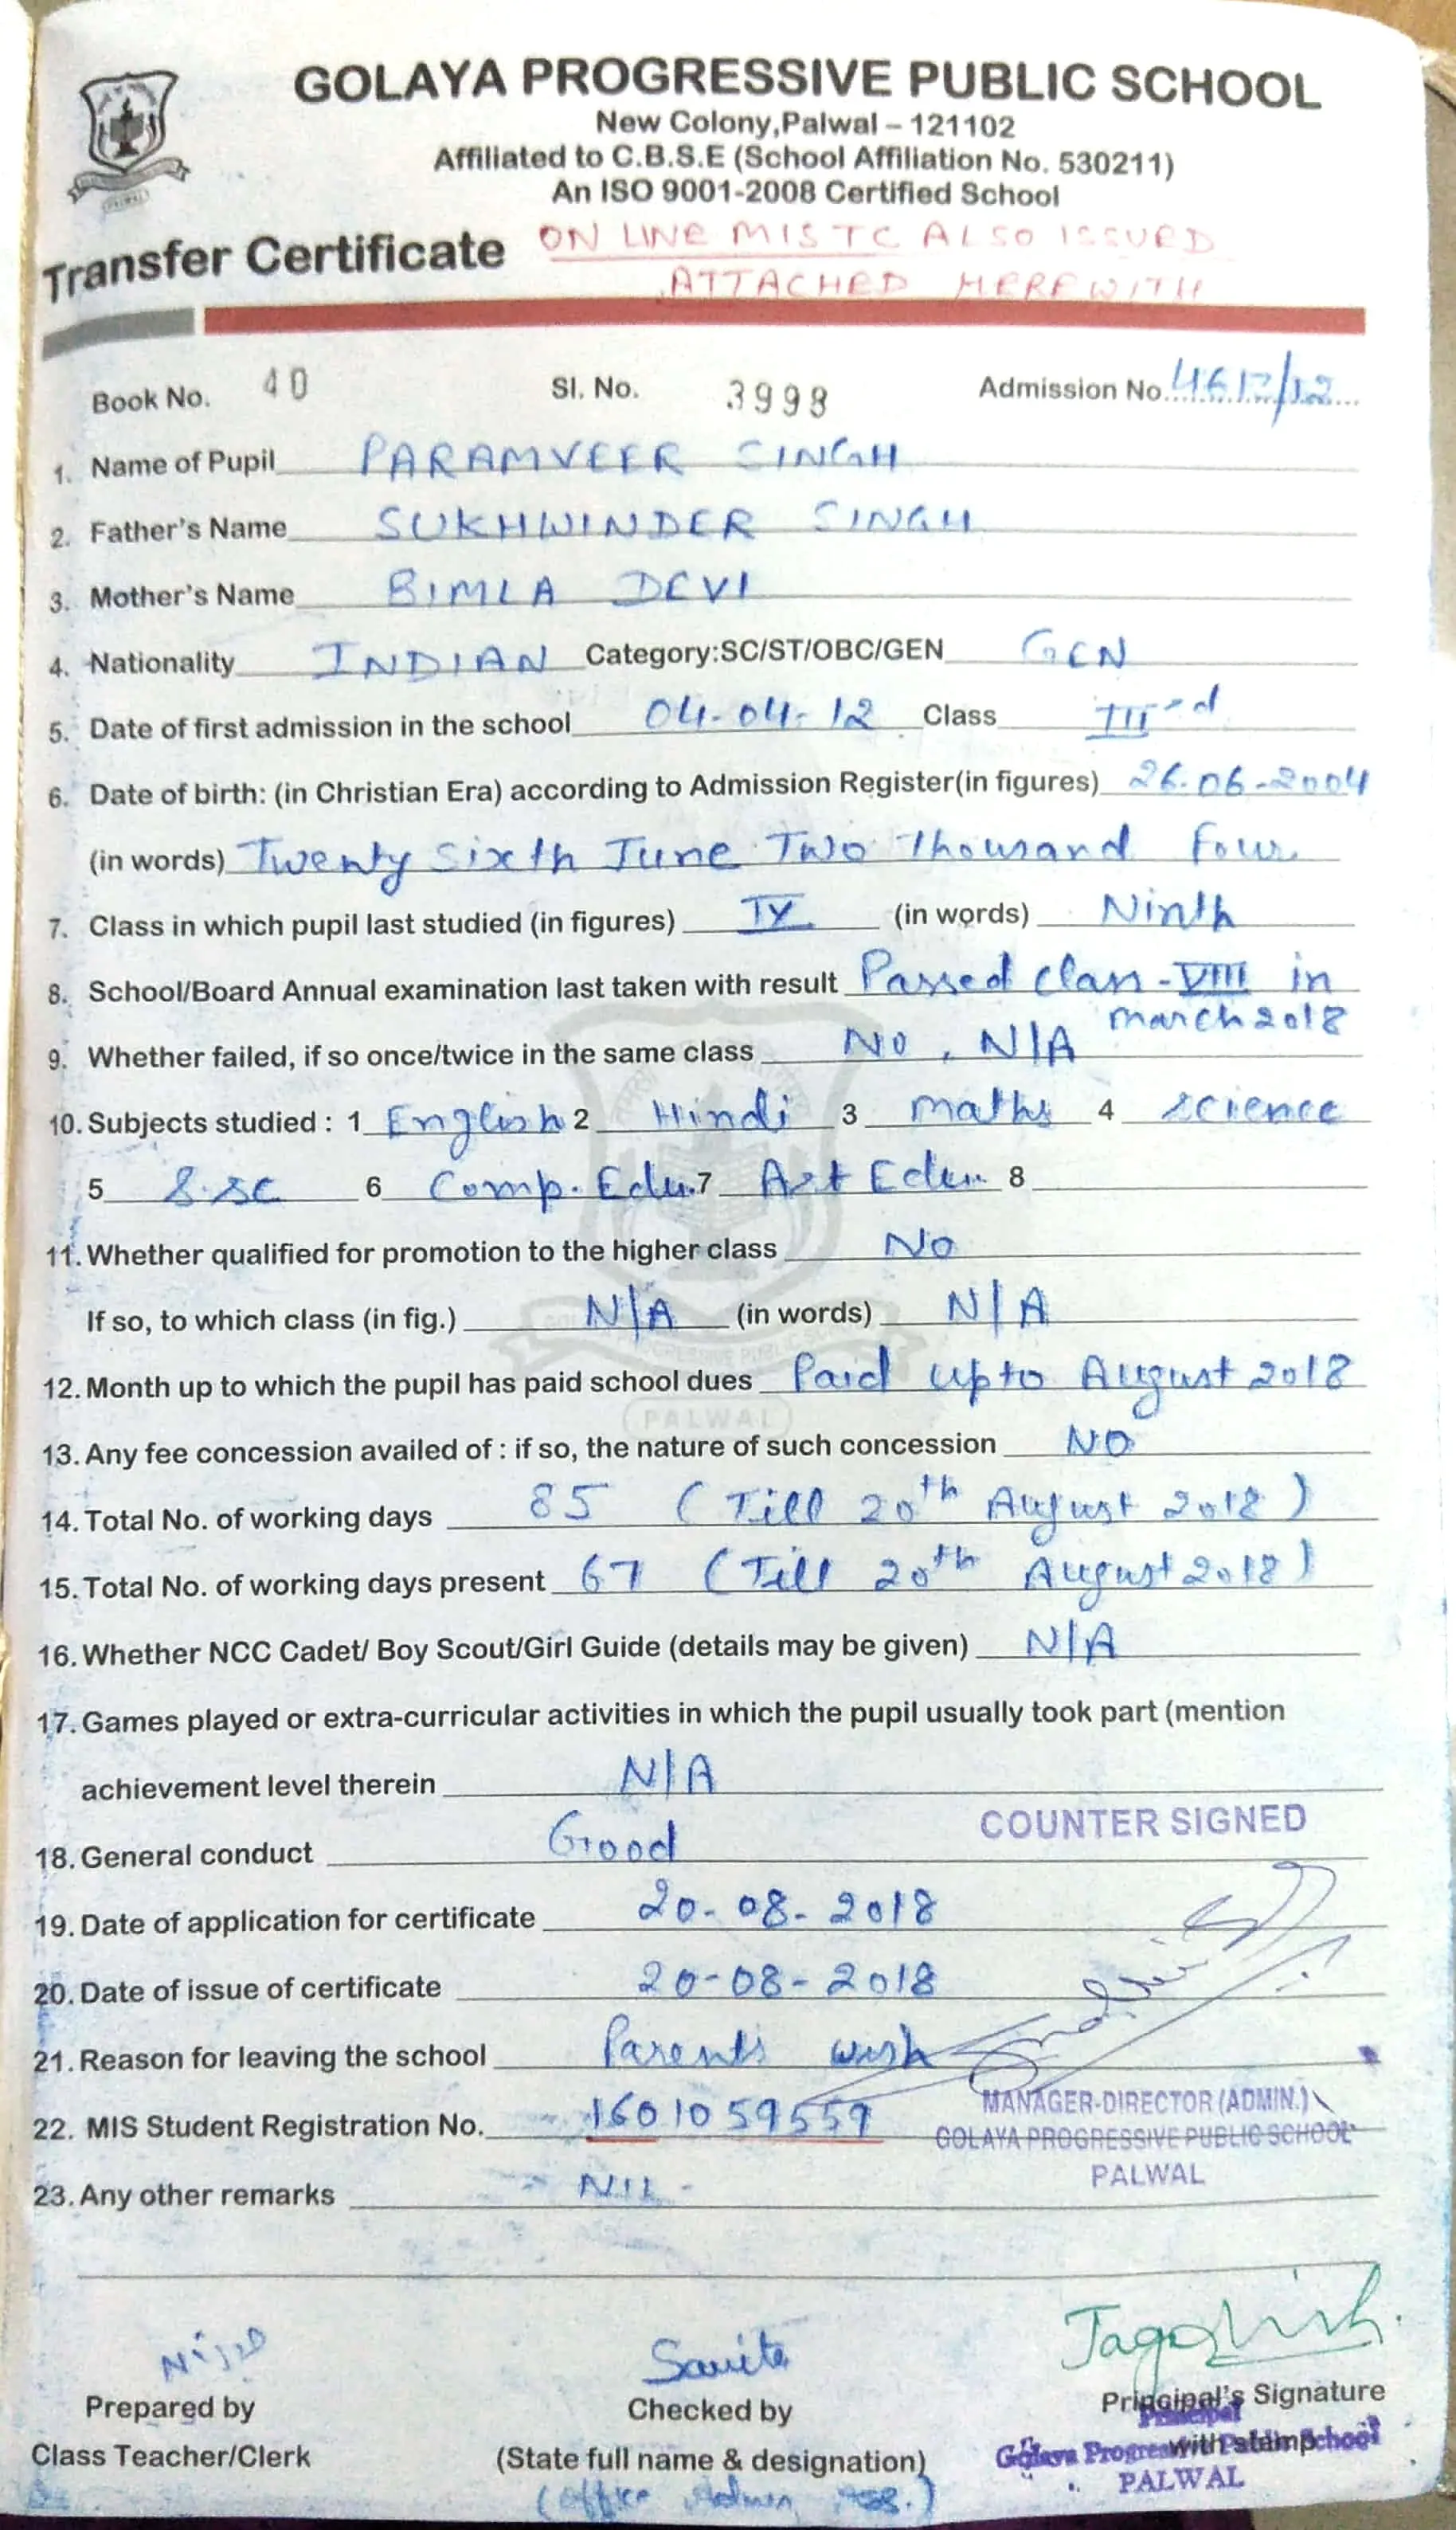 GOLAYA PROGRESSIVE PUBLIC SCHOOL
New Colony,Palwal – 121102
Affiliated to C.B.S.E (School Affiliation No. 530211)
An ISO 9001-2008 Certified School
Transfer Certificate ON LINE MIS TC ALSO ISSUED
ATTACHED HEREWITH
Book No. 40 Sl. No. 3998 Admission No. 4617/12
1. Name of Pupil PARAMVEER SINGH
2. Father's Name SUKHWINDER SINGH
3. Mother's Name BIMLA DEVI
4. Nationality INDIAN Category:SC/ST/OBC/GEN GEN
5. Date of first admission in the school 04-04-12 Class IIIrd
6. Date of birth: (in Christian Era) according to Admission Register(in figures) 26-06-2004
(in words) Twenty Sixth June Two Thousand Four
7. Class in which pupil last studied (in figures) IX (in words) Ninth
8. School/Board Annual examination last taken with result Passed Class-VIII in
March 2018
9. Whether failed, if so once/twice in the same class No, N/A
10. Subjects studied : 1 English 2 Hindi 3 Maths 4 Science
5 S.Sc 6 Comp. Edu. 7 Art Edu. 8
11. Whether qualified for promotion to the higher class No
If so, to which class (in fig.) N/A (in words) N/A
12. Month up to which the pupil has paid school dues Paid upto August 2018
PALWAL
13. Any fee concession availed of : if so, the nature of such concession NO
14. Total No. of working days 85 (Till 20th August 2018)
15. Total No. of working days present 67 (Till 20th August 2018)
16. Whether NCC Cadet/ Boy Scout/Girl Guide (details may be given) N/A
17. Games played or extra-curricular activities in which the pupil usually took part (mention
achievement level therein N/A
COUNTER SIGNED
18. General conduct Good
19. Date of application for certificate 20-08-2018
20. Date of issue of certificate 20-08-2018
21. Reason for leaving the school Parents wish
MANAGER-DIRECTOR (ADMIN.)
22. MIS Student Registration No. 1601059559
GOLAYA PROGRESSIVE PUBLIC SCHOOL
PALWAL
23. Any other remarks - NIL -
Savita
Jagdish
Prepared by Checked by Principal's Signature
Principal
Class Teacher/Clerk (State full name & designation) with stamp
Golaya Progressive Public School
PALWAL
(Office Admn.